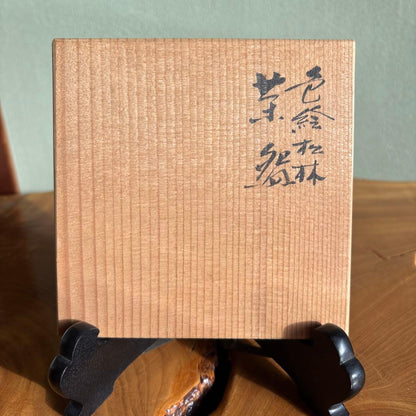 色絵松林
茶盌